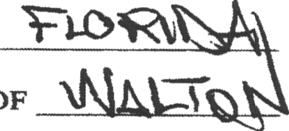 FLORIDA
OF WALTON